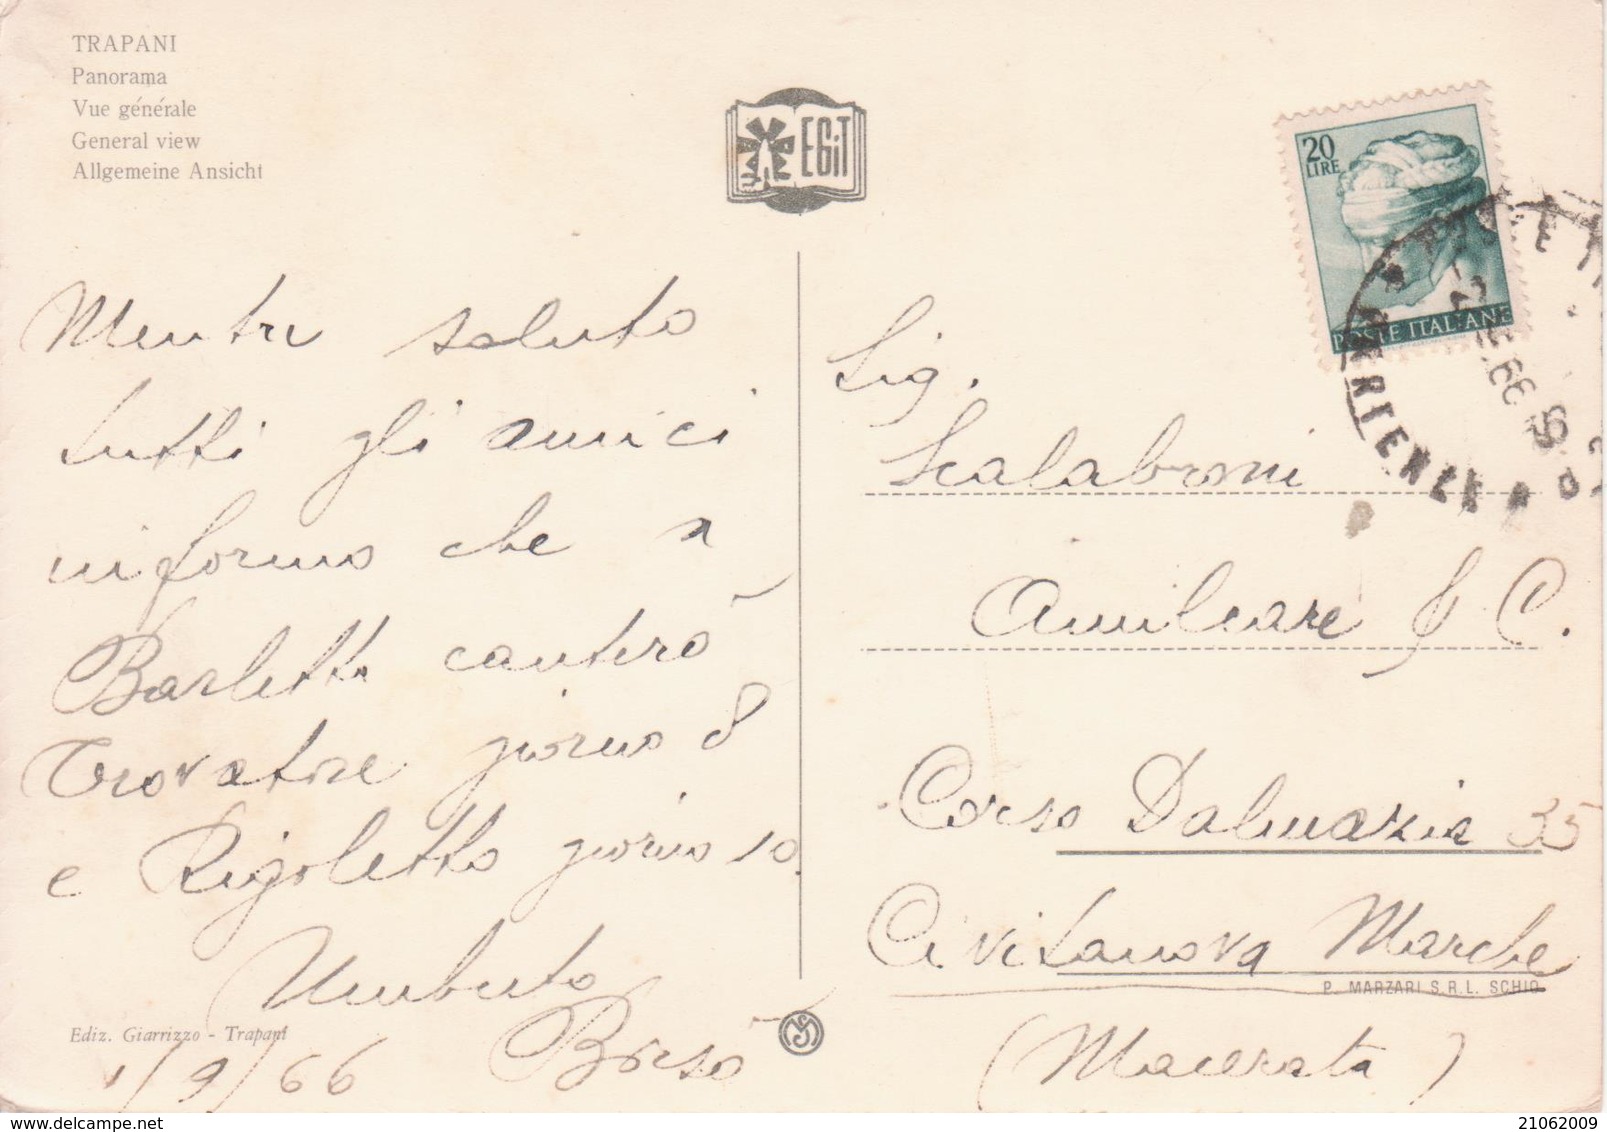 TRAPANI
Panorama
Vue générale
General view
Allgemeine Ansicht
EGiT
20
LIRE
POSTE ITALIANE
Mentre saluto
tutti gli amici
informo che a
Barletta canterò
Trovatore giorno 8
e Rigoletto giorno 10.
Umberto
Borsò
1/9/66
Ediz. Giarrizzo - Trapani
Sig.
Scalabroni
Amilcare & C.
Corso Dalmazia 35
Civitanova Marche
P. MARZARI S.R.L. SCHIO
(Macerata)
21062009